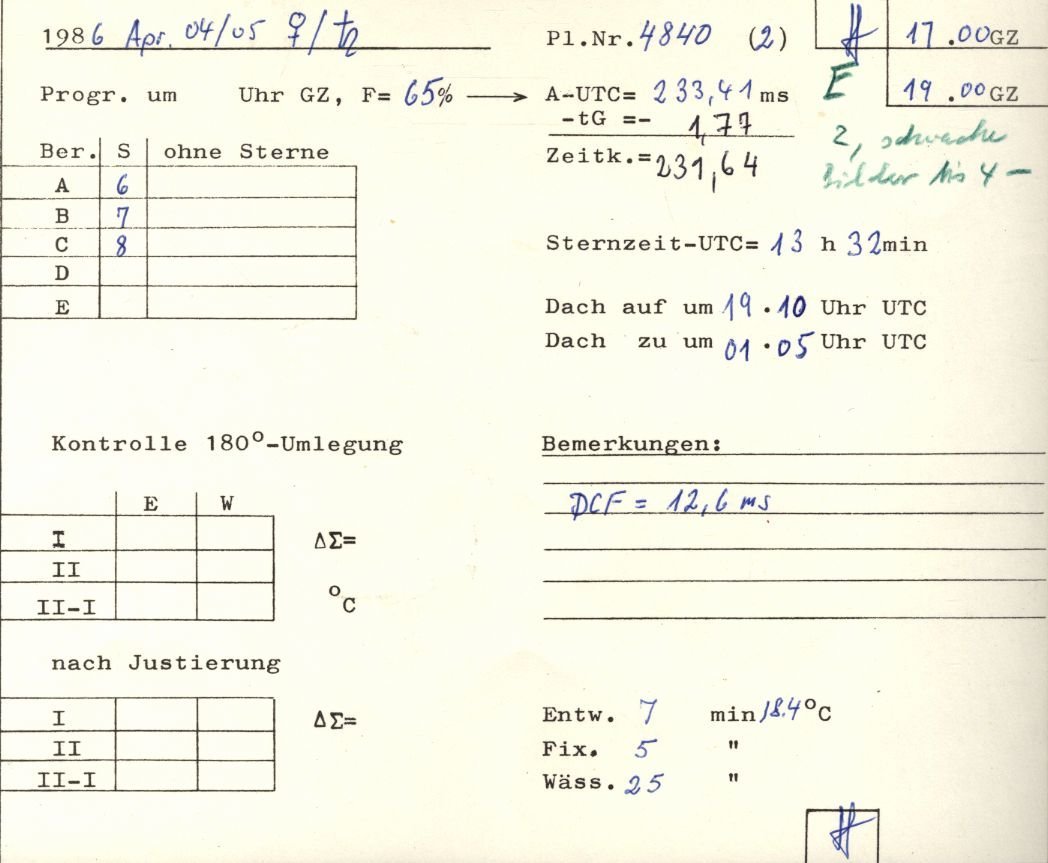 1986 Apr. 04/05 ♀/♄
Pl.Nr. 4840 (2)
17.00 GZ
Progr. um Uhr GZ, F= 65% → A-UTC= 233,41 ms
E
19.00 GZ
-tG =- 1,77
Zeitk.= 231,64
2, schwache
Bilder bis 4 –
Ber. S ohne Sterne
A 6
B 7
C 8
D
E
Sternzeit-UTC= 13 h 32min
Dach auf um 19.10 Uhr UTC
Dach zu um 01.05 Uhr UTC
Kontrolle 180°-Umlegung
E W
I ΔΣ=
II
II-I °C
nach Justierung
I ΔΣ=
II
II-I
Bemerkungen:
DCF = 12,6 ms
Entw. 7 min 18.4°C
Fix. 5 "
Wäss. 25 "